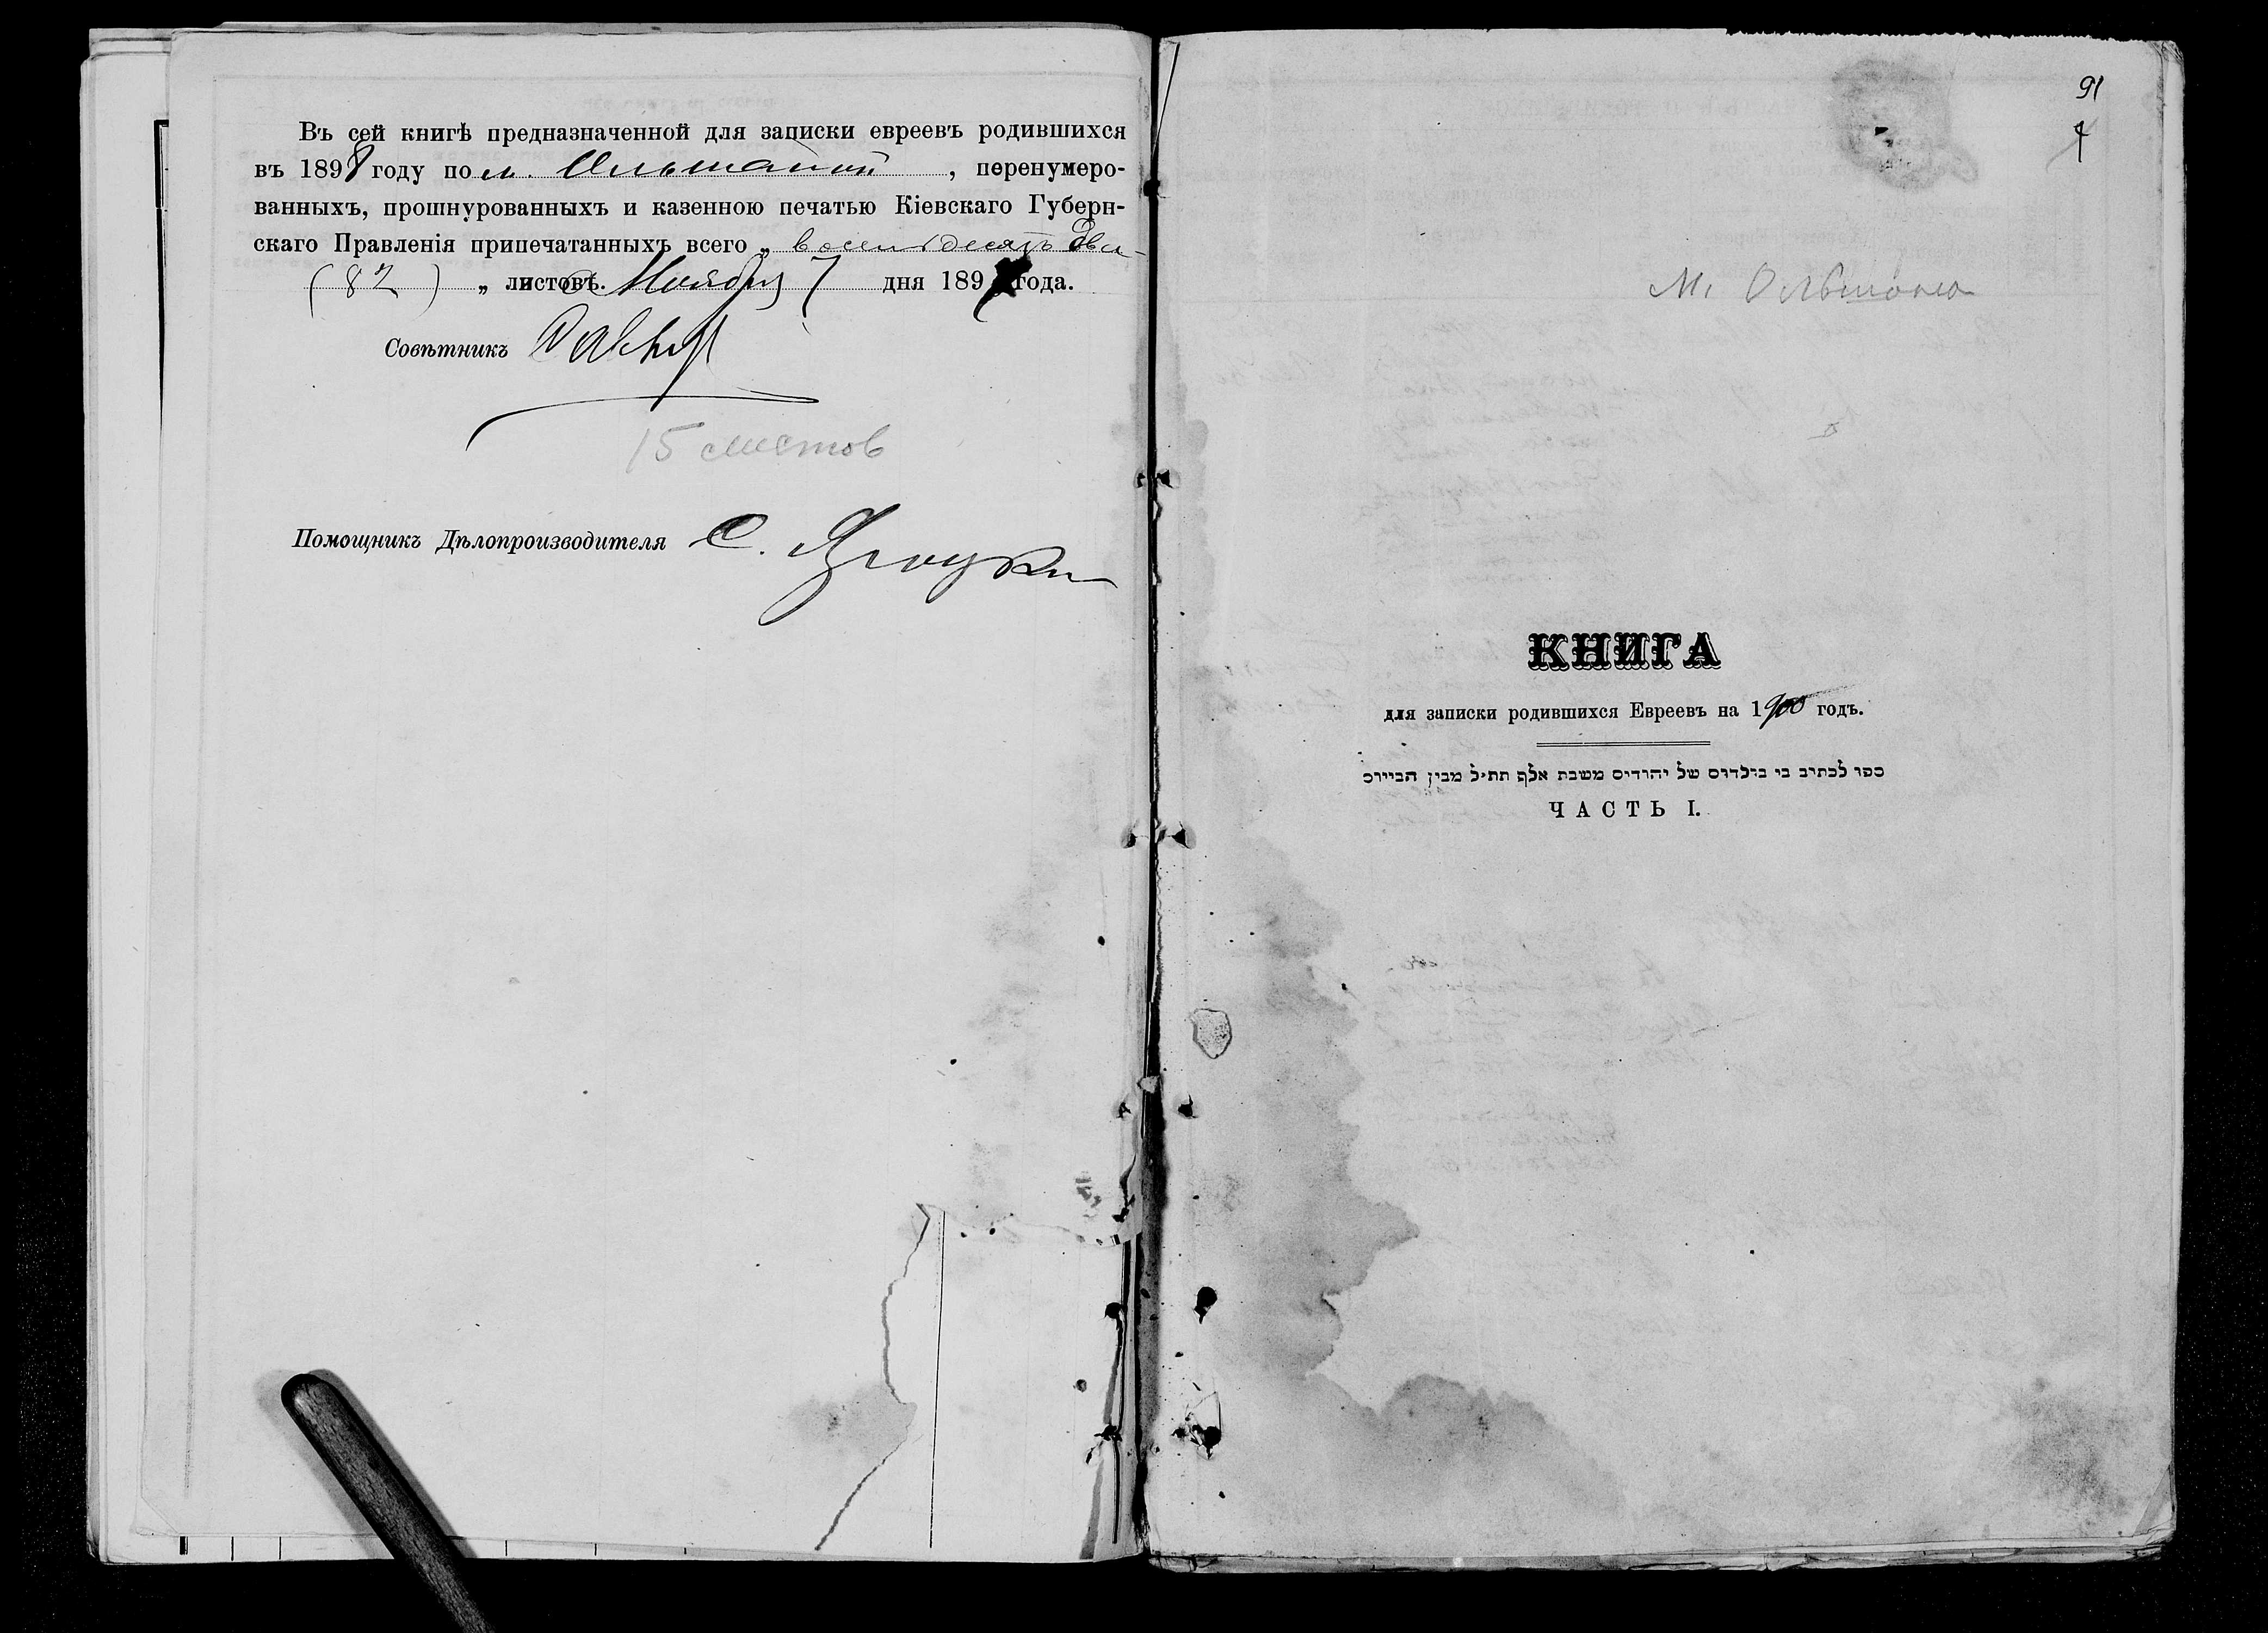 Въ сей книгѣ предназначенной для записки евреевъ родившихся
въ 1898 году по м. Ольшаной, перенумеро-
ванныхъ, прошнурованныхъ и казенною печатью Кіевскаго Губерн-
скаго Правленія припечатанныхъ всего „ восемьдесятъ два
(82) „ листовъ. Ноября 7 дня 189 года.
Совѣтникъ
15 листов
Помощникъ Дѣлопроизводителя С.
91
М. Ольшана
КНИГА
для записки родившихся Евреевъ на 1900 годъ.
ספר לכתיב בי בולדום של יהודים משבת אלף תת״ל מבין הביירס
ЧАСТЬ I.